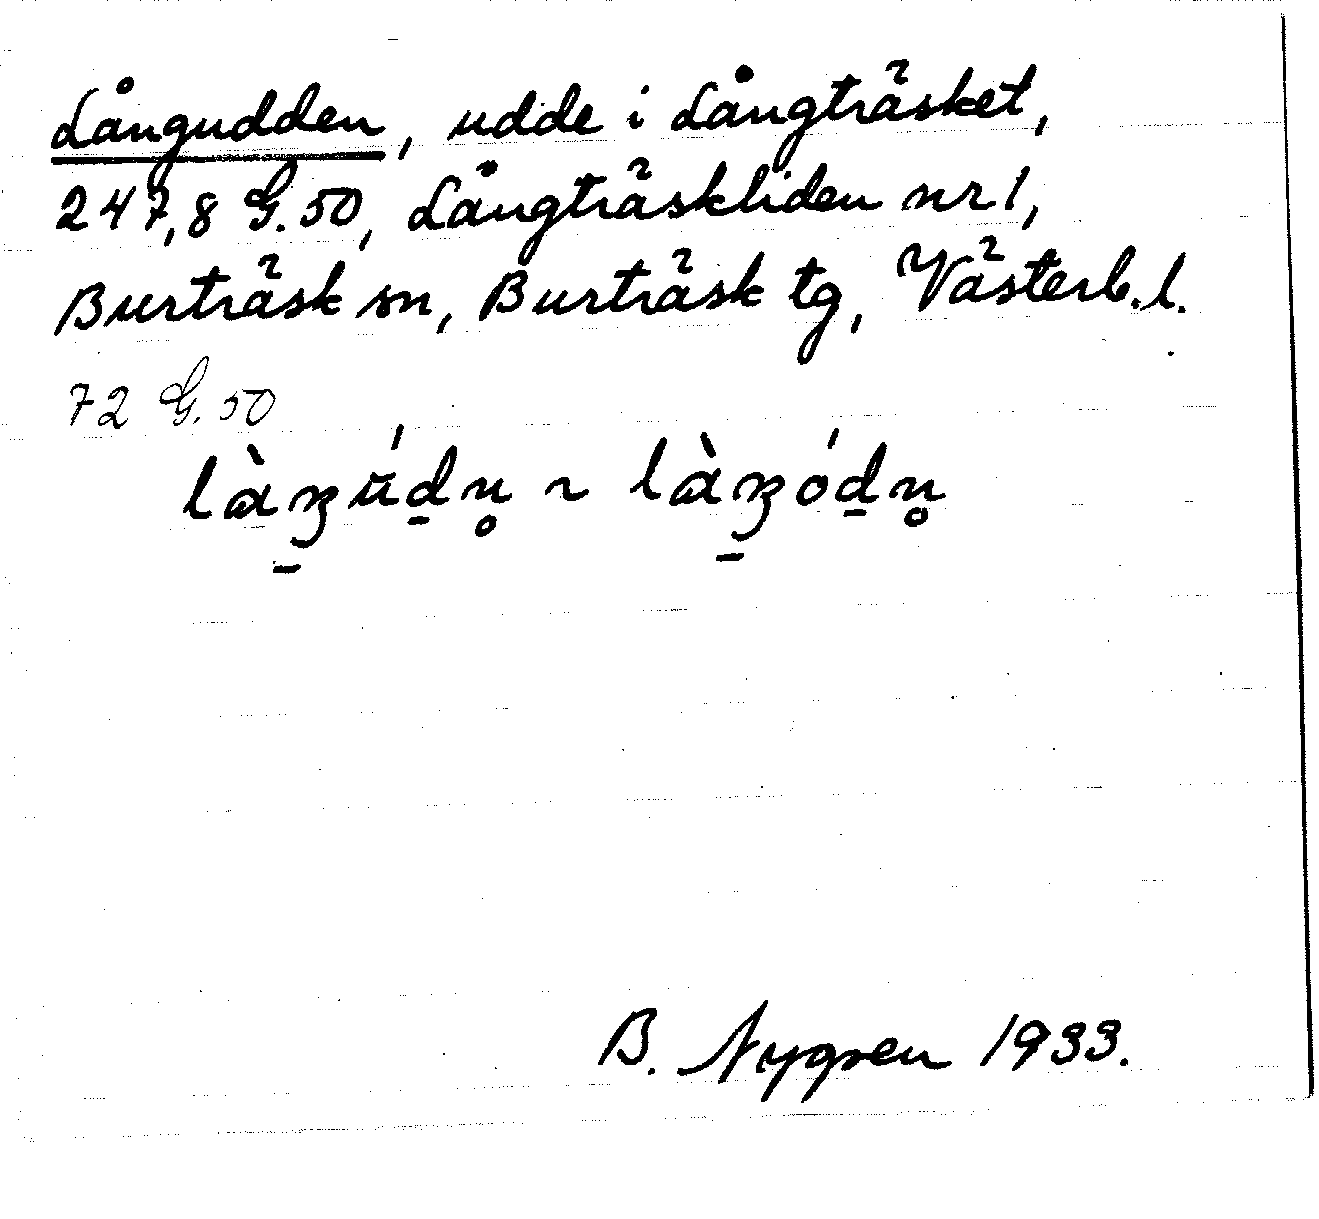 Långudden, udde i Långträsket,
247,8 G.50, Långträskliden nr 1,
Burträsk sn, Burträsk tg, Västerb.l.
72 G.50
làŋ̱úḏn̥ ~ làŋ̱óḏn̥
B. Nygren 1933.